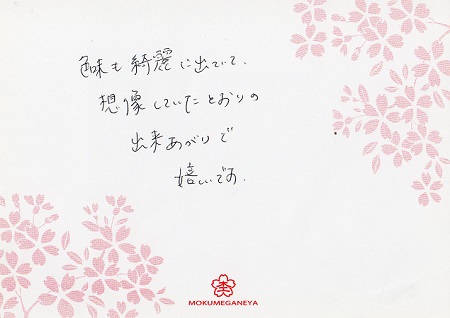 色味も綺麗に出ていて、
想像していたとおりの
出来あがりで
嬉しいです.
MOKUMEGANEYA